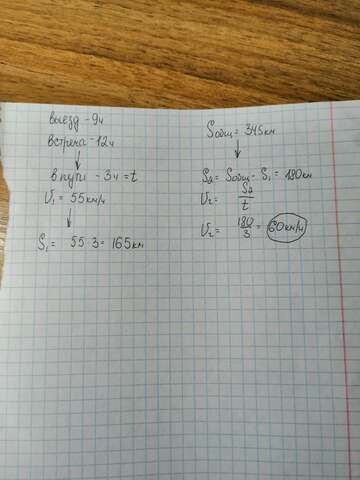 выезд - 9ч
встреча - 12ч
в пути - 3ч = t
V₁ = 55 км/ч
S₁ = 55 3 = 165 км
Sобщ = 345 км
S₂ = Sобщ - S₁ = 180 км
V₂ = S₂/t
V₂ = 180/3 = 60 км/ч